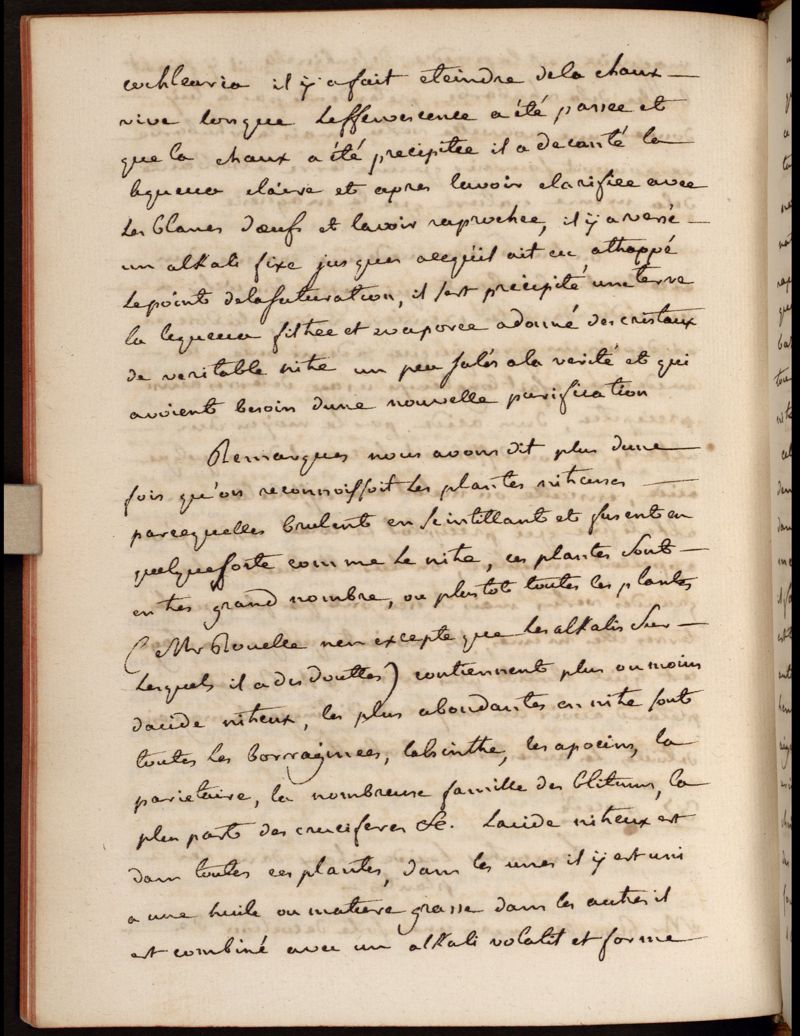 cochlearia il ÿ a fait eteindre de la chaux
vive lorsque Leffervescence a été passee et
que la chaux a été precipitee il a decanté la
liqueur claire et apres lavoir clarifiee avec
les blancs dœufs et lavoir raprochee, il ÿ a versé
un alkali fixe jusques acequil ait eu attrappé
le point de la saturation, il s'est précipité une terre
la liqueur filtree et evaporee a donné des cristaux
de veritable nitre un peu salés a la verité et qui
avoient besoin dune nouvelle purification
Remarques nous avons dit plus dune
fois qu'on reconnoissoit les plantes nitreuses
parcequelles brulent en scintillant et fusent en
quelque sorte comme le nitre, ces plantes sont
en tres grand nombre, ou plustot toutes les plantes
(Mr Rouelle nen excepte que les alkalis sur
lesquels il a des douttes) contiennent plus ou moins
dacide nitreux, les plus abondantes en nitre sont
toutes les borraginees, labsinthe, les apocins, la
parietaire, la nombreuse famille des blitums, la
plus part des cruciferes &c. Lacide nitreux est
dans toutes ces plantes, dans les unes il ÿ est uni
a une huile ou matiere grasse dans les autres il
est combiné avec un alkali volatil et forme